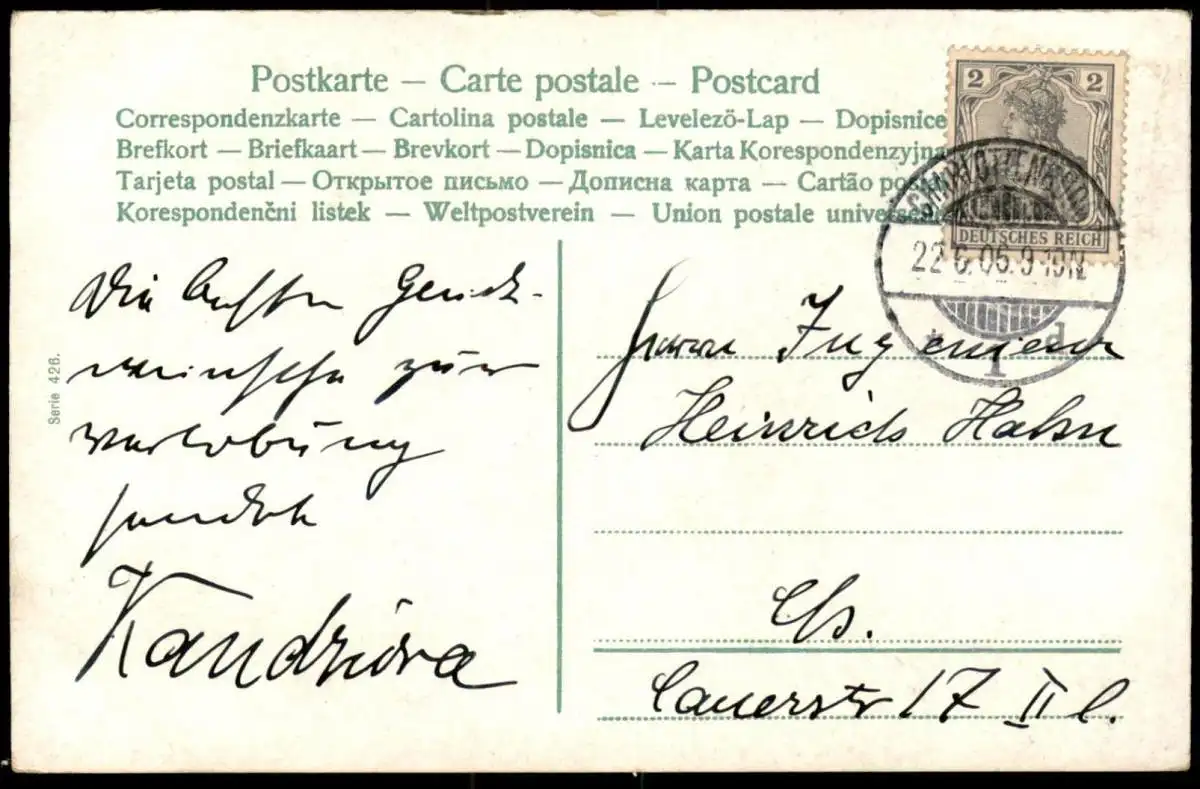 Postkarte – Carte postale – Postcard
Correspondenzkarte – Cartolina postale – Levelező-Lap – Dopisnice
Brefkort – Briefkaart – Brevkort – Dopisnica – Karta Korespondenzyjna
Tarjeta postal – Открытое письмо – Дописна карта – Cartão postal
Korespondenčni listek – Weltpostverein – Union postale universelle
2 2
DEUTSCHES REICH
CHARLOTTENBURG
22 6. 05. 9-10N.
* 1 d
Serie 426.
Die besten Glück-
wünsche zur
Verlobung
sendet
Kandziora
Herrn Ingenieur
Heinrich Hahn
Ch.
Cauerstr 17 II l.